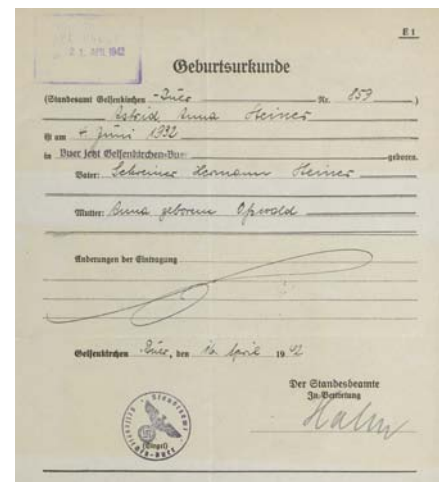 E 1
21. APR. 1942
Geburtsurkunde
(Standesamt Gelsenkirchen -Buer Nr. 859)
Astrid Anna Steiner
ist am 4. Juni 1932
in Buer jetzt Gelsenkirchen-Buer geboren.
Vater: Schreiner Hermann Steiner
Mutter: Anna geborene
Änderungen der Eintragung
Gelsenkirchen Buer, den 16. April 1942
Der Standesbeamte
In Vertretung
Hahn
(Siegel)